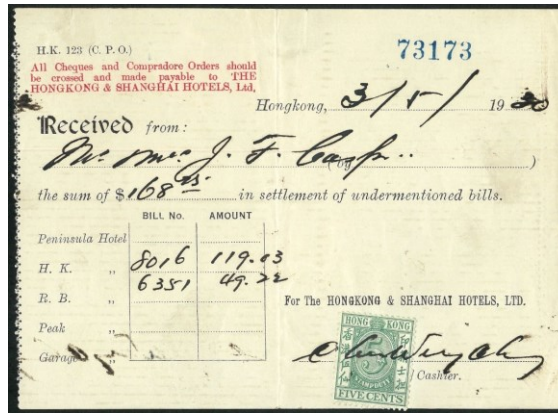 H.K. 123 (C. P. O.)
73173
All Cheques and Compradore Orders should
be crossed and made payable to THE
HONGKONG & SHANGHAI HOTELS, Ltd.
Hongkong, 3/5/ 1930
Received from:
Mr. Mrs J. F.
the sum of $168 25 in settlement of undermentioned bills.
BILL No. AMOUNT
Peninsula Hotel
H. K. „ 8016 119.03
6351 49.22
R. B. „
Peak „
Garage „
For The HONGKONG & SHANGHAI HOTELS, LTD.
HONG KONG
STAMP DUTY
FIVE CENTS
Cashier.